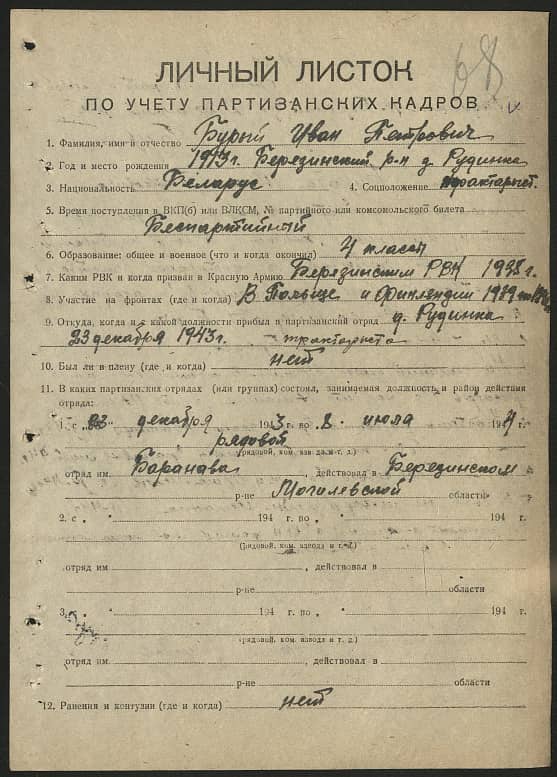 68
ЛИЧНЫЙ ЛИСТОК
ПО УЧЕТУ ПАРТИЗАНСКИХ КАДРОВ
1. Фамилия, имя и отчество Бурый Иван Петрович
2. Год и место рождения 1913 г. Березинский р-н д. Рудинка
3. Национальность Беларус 4. Соцположение
5. Время поступления в ВКП(б) или ВЛКСМ, № партийного или комсомольского билета
Беспартийный
6. Образование: общее и военное (что и когда окончил) 4 класса
7. Каким РВК и когда призван в Красную Армию Березинским РВК 1938 г.
8. Участие на фронтах (где и когда) В Польще и Финлендии 1939
9. Откуда, когда и с какой должности прибыл в партизанский отряд д. Рудинка
23 декабря 1943 г. тракториста
10. Был ли в плену (где и когда) нет
11. В каких партизанских отрядах (или группах) состоял, занимаемая должность и район действия
отряда:
1. с „23 декабря 1943 г. по 8 июла 1944
рядовой
(рядовой, ком. взвода и т. д.)
отряд им Баранава, действовал в Березинском
р-не Могилевской области
2. с „ " 194 г. по " 194 г.
(рядовой, ком. взвода и т. д.)
отряд им , действовал в
р-не области
3. „ " 194 г. по " 194 г.
(рядовой, ком. взвода и т. д.)
отряд им. , действовал в
р-не области
12. Ранения и контузии (где и когда) нет